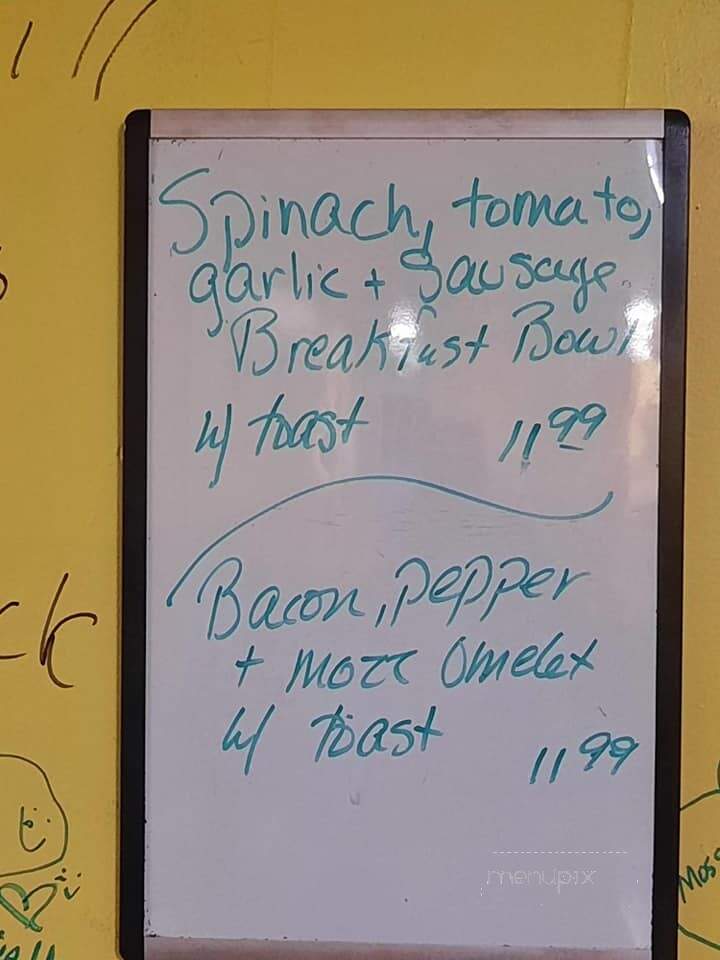 Spinach, tomato,
garlic + Sausage
Breakfast Bowl
w/ toast 11.99
Bacon, pepper
+ mozz Omelet
w/ toast 11 99
ck
Moss
menupix